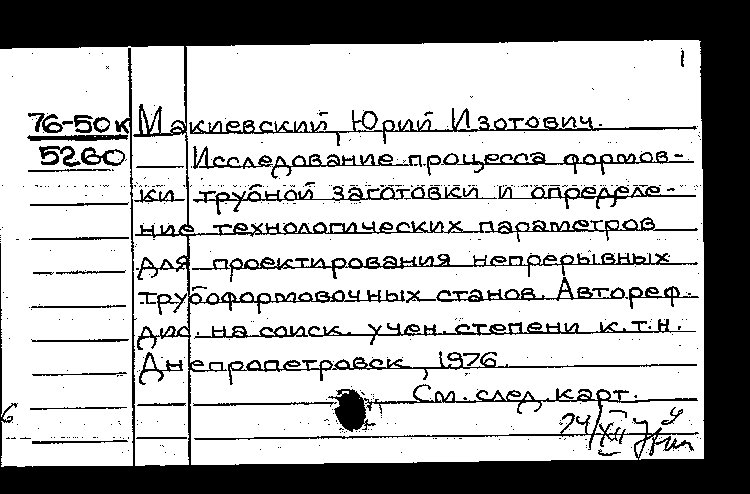 1
76-50к Макиевский, Юрий Изотович.
5260 Исследование процесса формов-
ки трубной заготовки и определе-
ние технологических параметров
для проектирования непрерывных
трубоформовочных станов. Автореф.
дис. на соиск. учен. степени к.т.н.
Днепропетровск, 1976.
См. след. карт.
6
24/XII